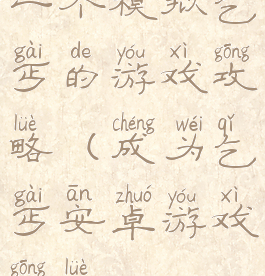 模拟乞
gài de yóu xì gōng
丐的游戏攻
lüè chéng wéi qǐ
略（成为乞
gài ān zhuó yóu xì
丐安卓游戏
gōng lüè